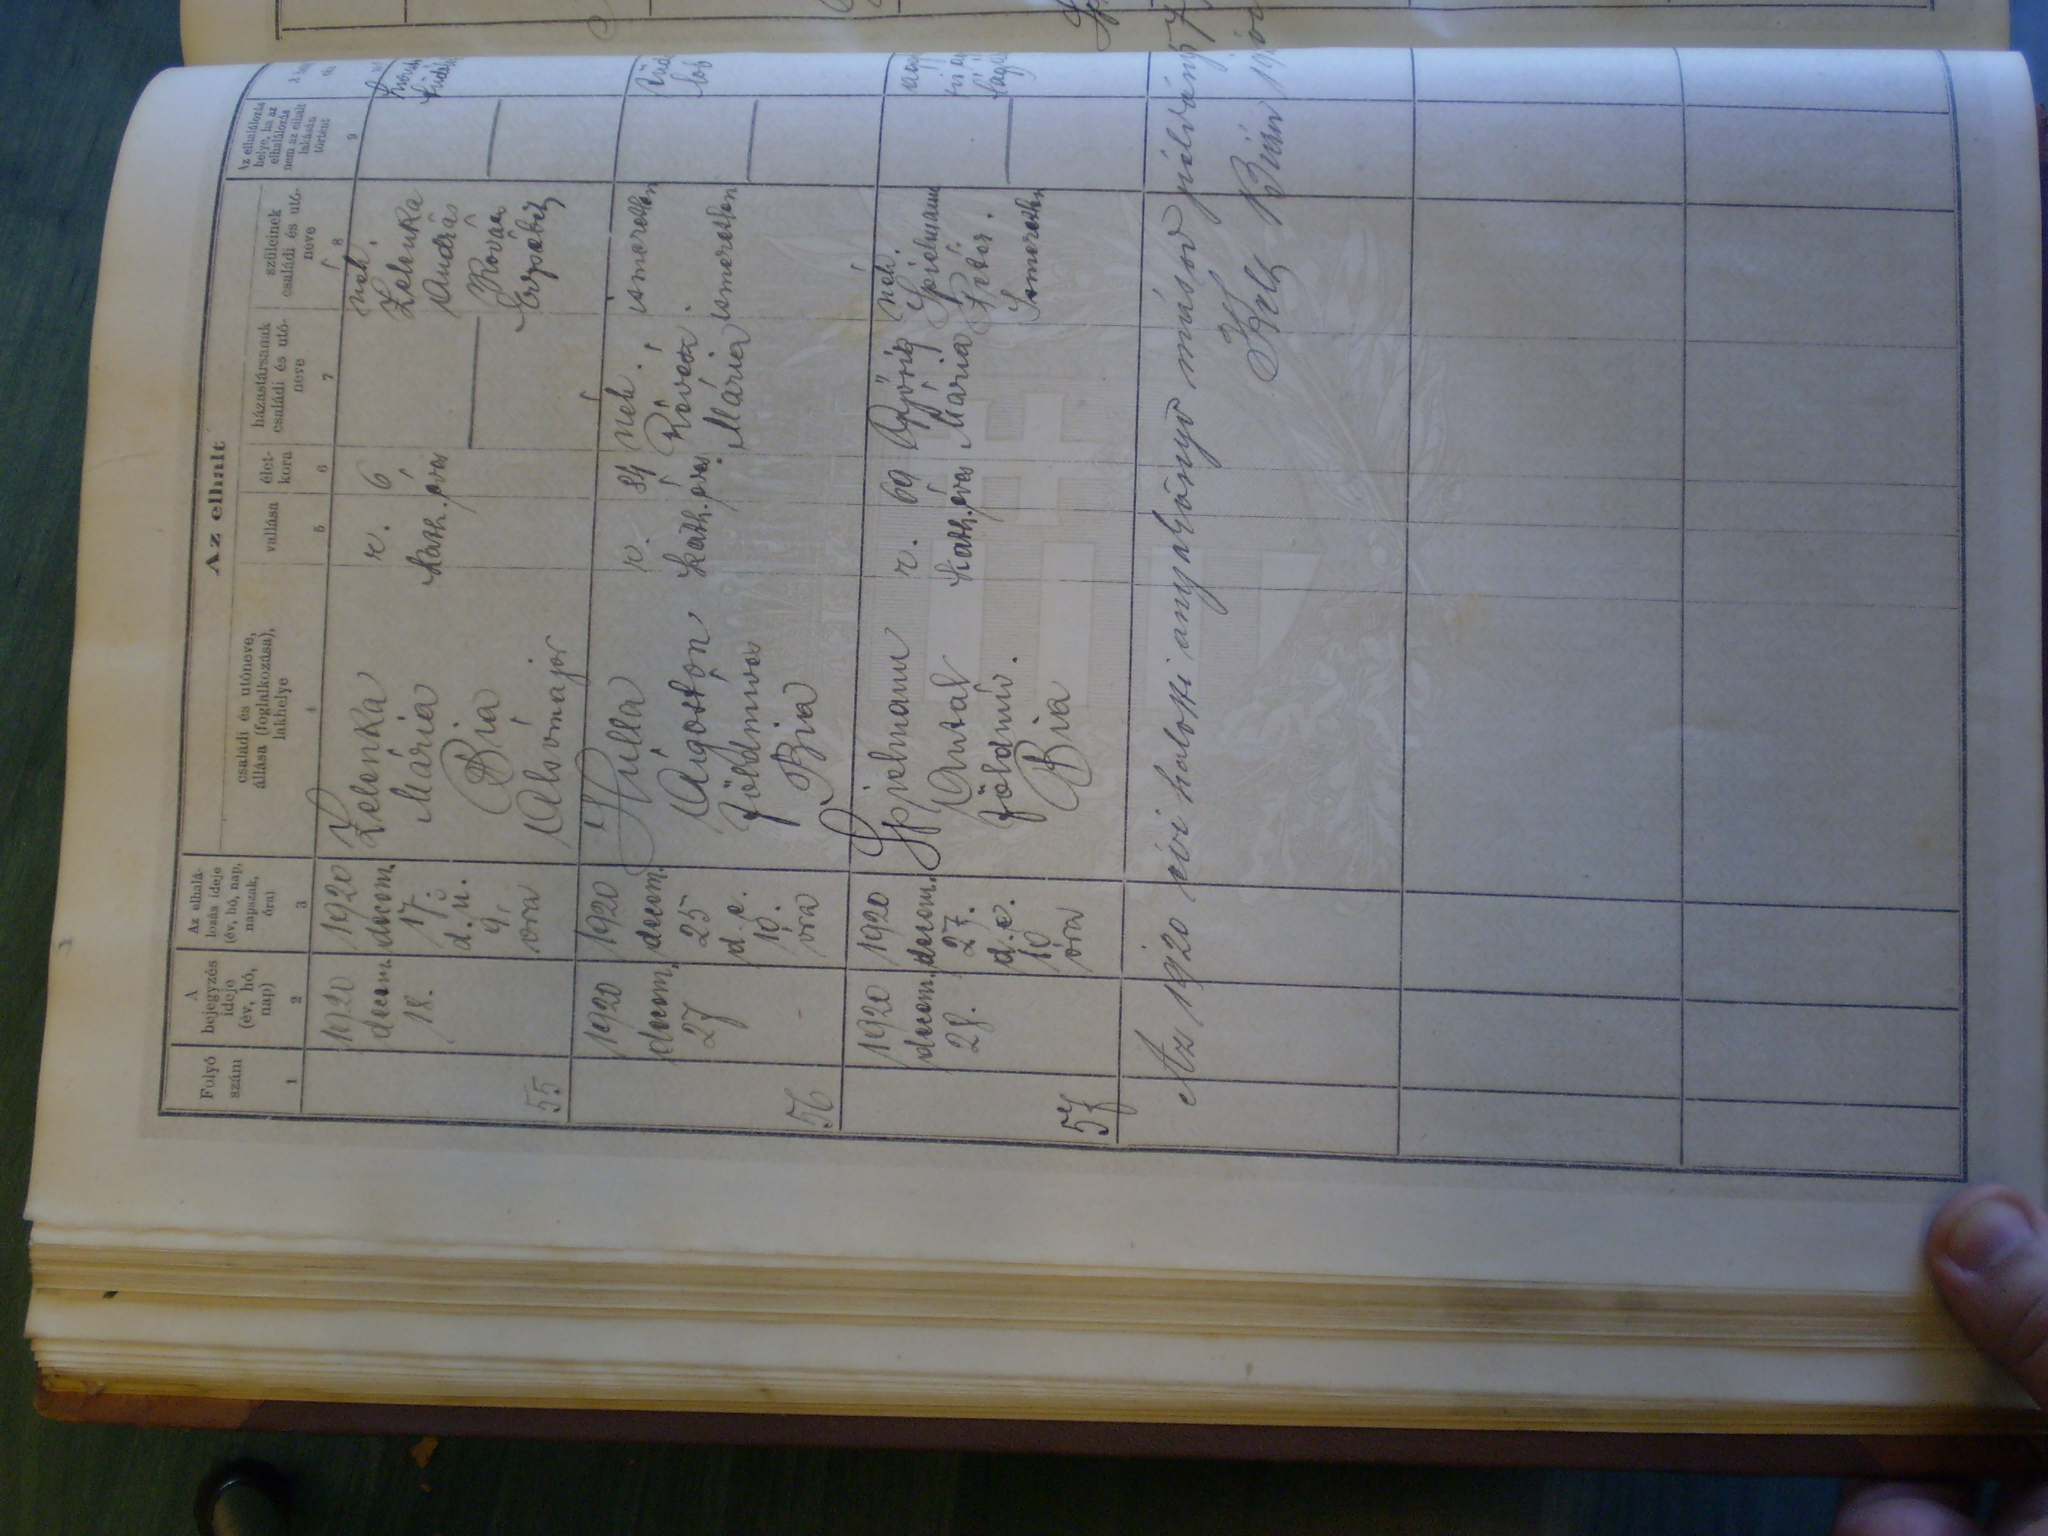 Az elhalt
Folyó szám
A bejegyzés ideje (év, hó, nap)
Az elhalálozás ideje (év, hó, nap, napszak, óra)
családi és utóneve, állása (foglalkozása), lakhelye
vallása
életkora
házastársának családi és utóneve
szüleinek családi és utóneve
Az elhalálozás helye, ha az elhalálozás nem az elhalt lakásán történt
1 2 3 4 5 6 7 8 9
55
1920 decem. 18.
1920 decem. 17. d. u. 9. óra
Zelenka Mária Bia Alsómajor
r. kath.
6 éves
néh. Zelenka András Kovács Erzsébet
56
1920 decem. 27
1920 decem. 25 d. e. 10. óra
Hulla Ágoston földmives Bia
r. kath.
84 éves
néh. Mária
ismeretlen ismeretlen
57
1920 decem. 28.
1920 decem. 27. d. e. 10 óra
Spielmann Antal földmív. Bia
r. kath.
69 éves
Mária
néh. Spielmann Péter. Ismeretlen
Az 1920 évi halotti anyakönyv másod példány 57
Kelt Bián 19